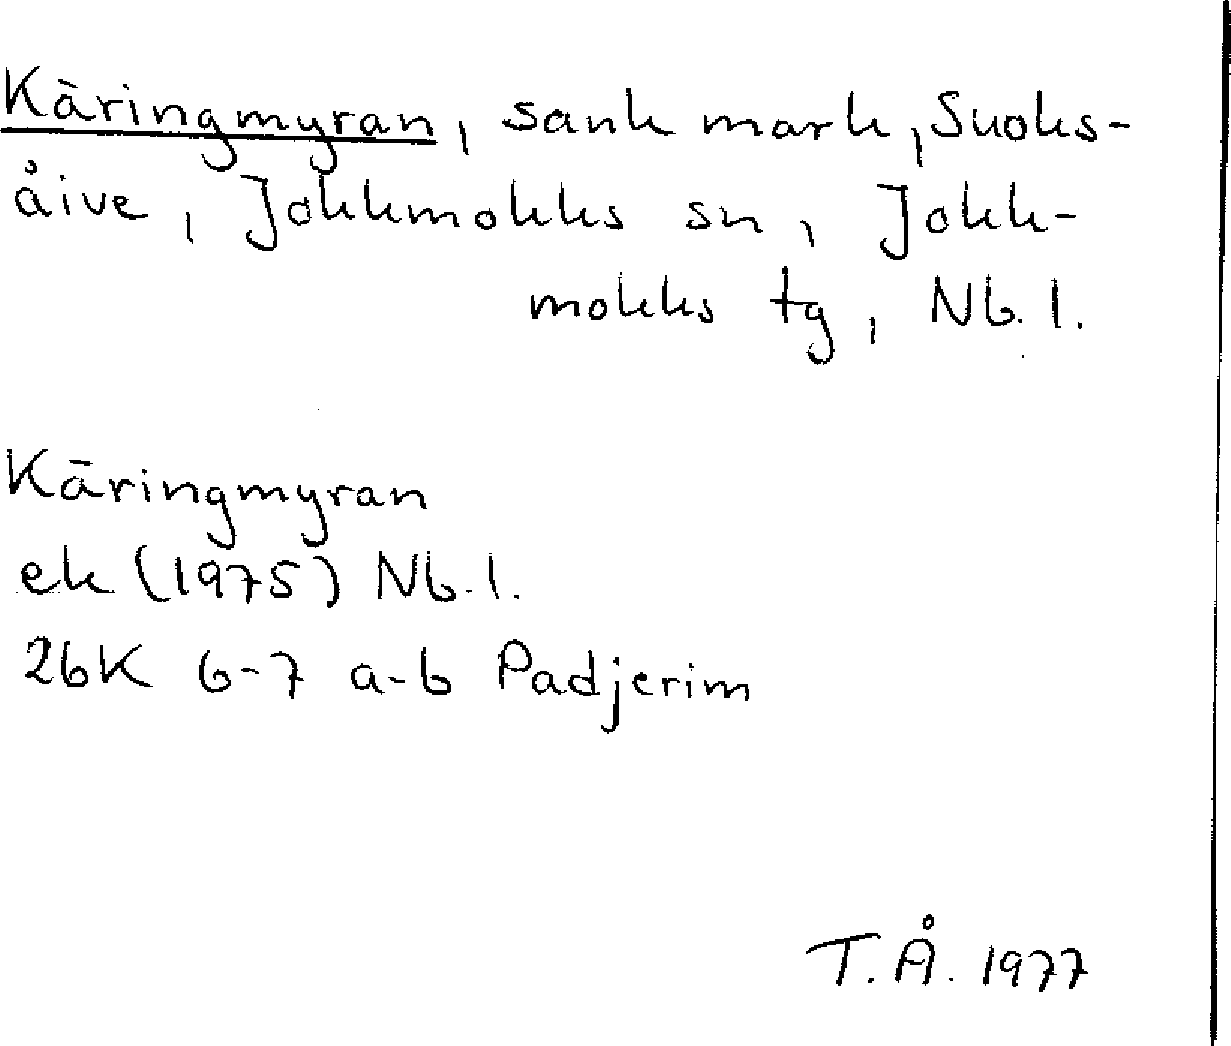 Käringmyran, sank mark, Suoks-
åive, Jokkmokks sn, Jokk-
mokks tg, Nb. l.
Käringmyran
ek (1975) Nb. l.
26K 6-7 a-b Padjerim
T.Å. 1977